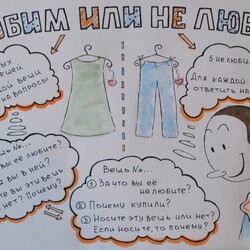 БИМ ИЛИ НЕ ЛЮБ
ых
вещей
ой вещи
на вопросы
5 нелюби
Для каждой
ответить на
Вещь №...
вы её любите?
вы в ней?
те вы эту вещь
нет? Почему?
Вещь №...
① За что вы её
не любите?
② Почему купили?
③ Носите эту вещь или нет?
Если носите, то почему?